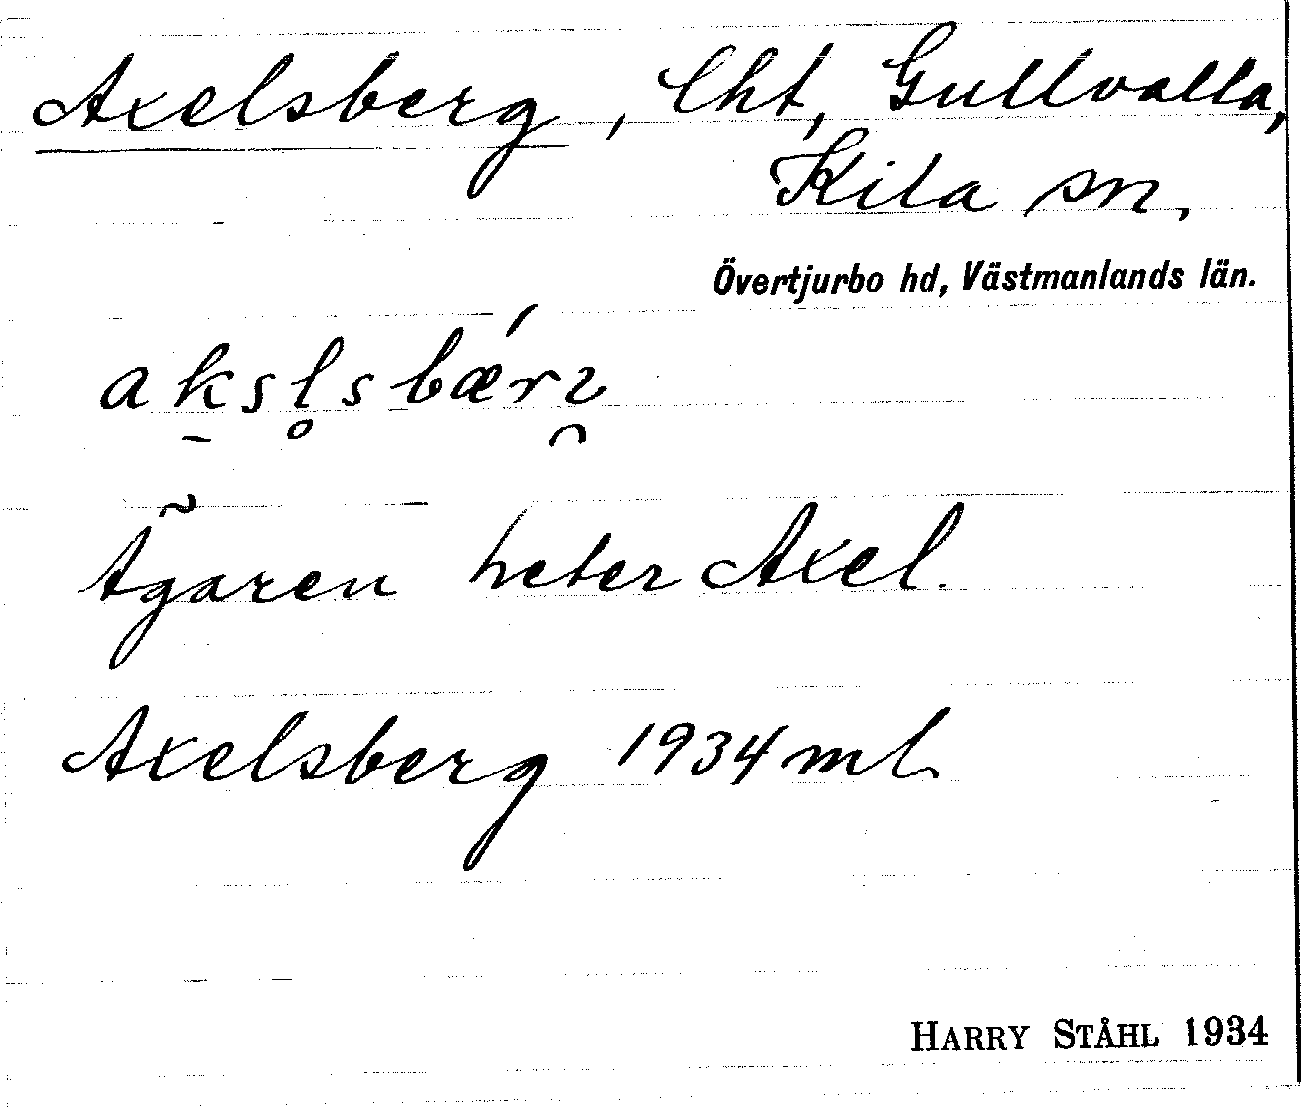 Axelsberg, lht, Gullvalla,
Kila sn,
Övertjurbo hd, Västmanlands län.
aksl̥sbǽrı̯
Ägaren heter Axel.
Axelsberg 1934 ml.
HARRY STÅHL 1934